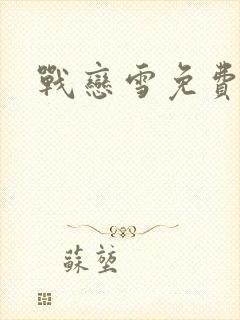 戰戀雪免費
蘇堃